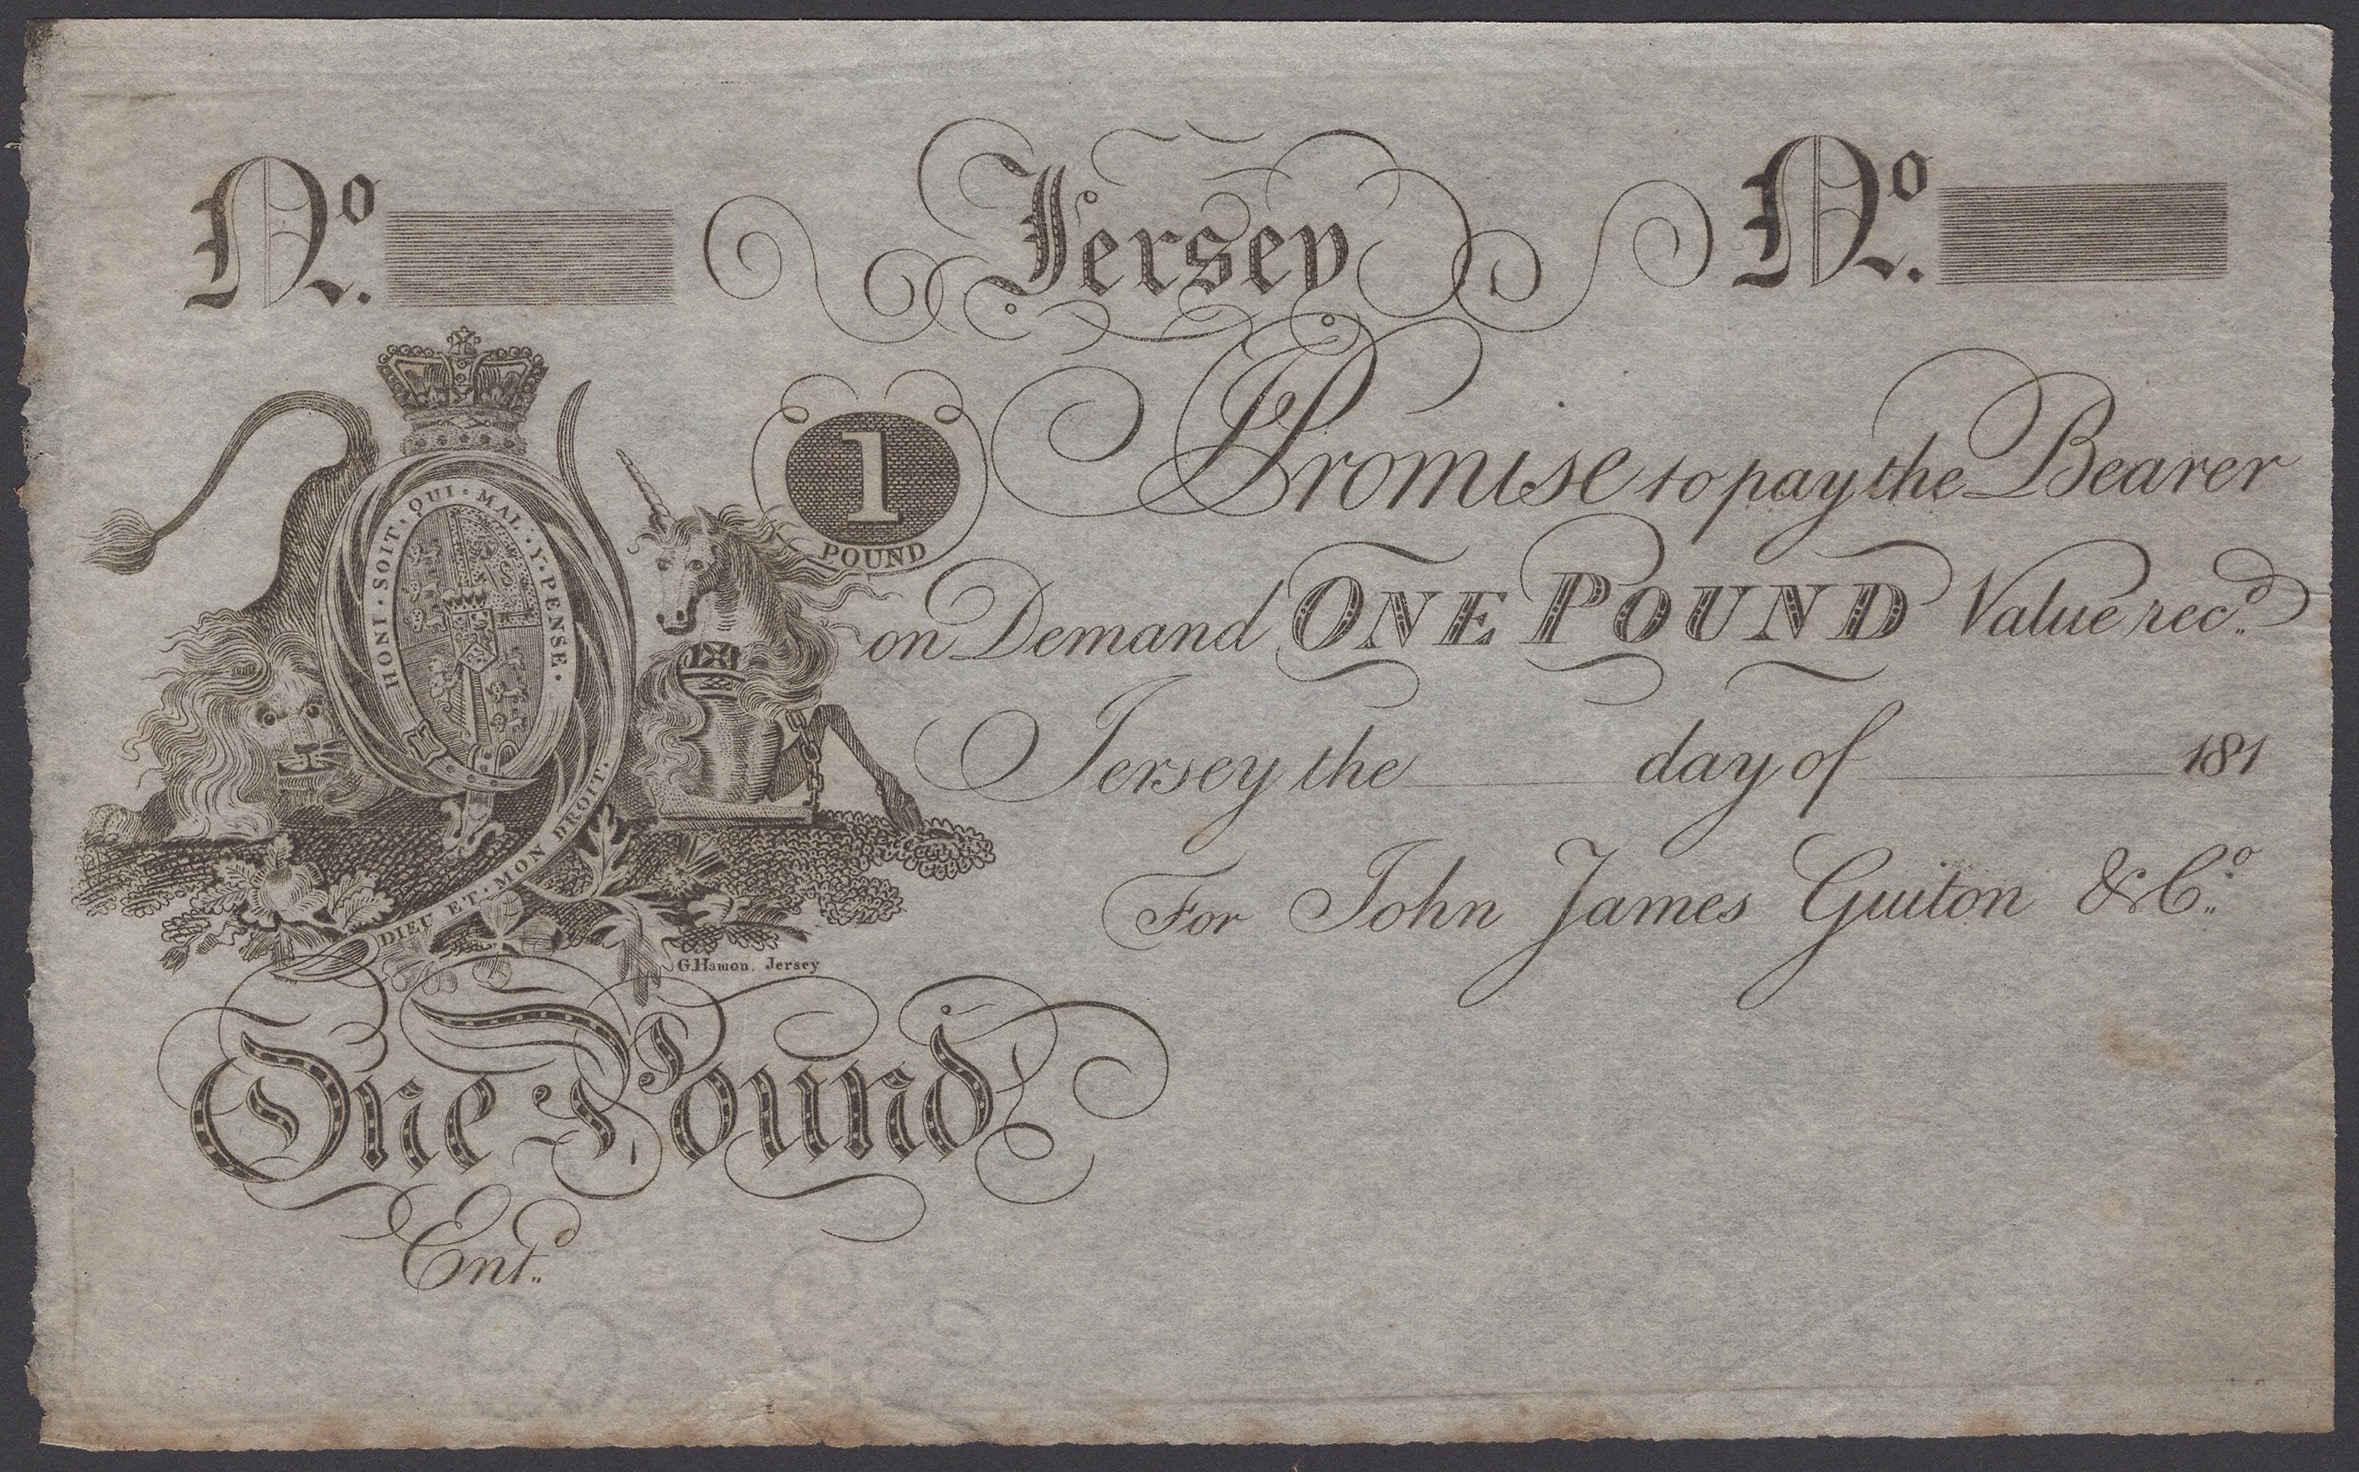 No. No.
Jersey
HONI · SOIT · QUI · MAL · Y · PENSE ·
DIEU ET · MON DROIT ·
1
POUND
I Promise to pay the Bearer
on Demand ONE POUND Value recd.
Jersey the day of 181
For John James Guiton & Co.
G. Hamon, Jersey
One Pound
Entd.